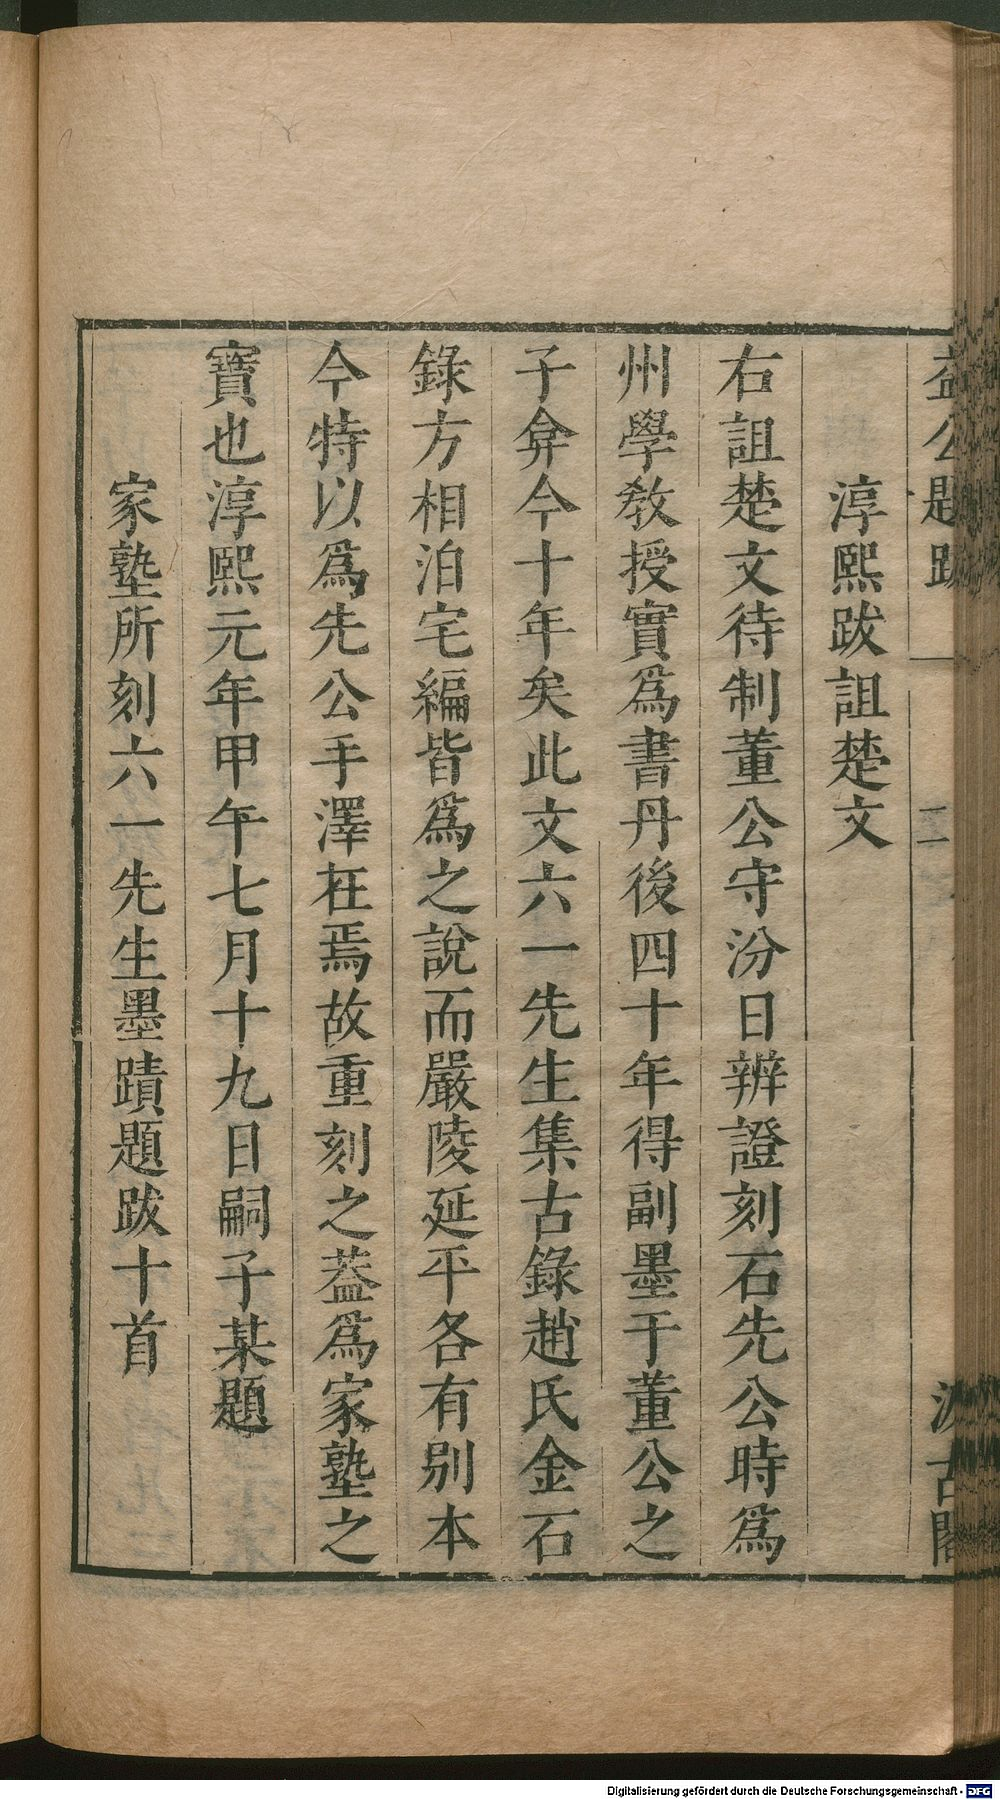 益公題跋 一 二 汲古閣
淳熙跋詛楚文
右詛楚文待制董公守汾日辨證刻石先公時爲
州學敎授實爲書丹後四十年得副墨于董公之
子弅今十年矣此文六一先生集古錄趙氏金石
錄方相泊宅編皆爲之說而嚴陵延平各有别本
今特以爲先公手澤在焉故重刻之葢爲家塾之
寶也淳熙元年甲午七月十九日嗣子某題
家塾所刻六一先生墨蹟題跋十首
Digitalisierung gefördert durch die Deutsche Forschungsgemeinschaft - DFG